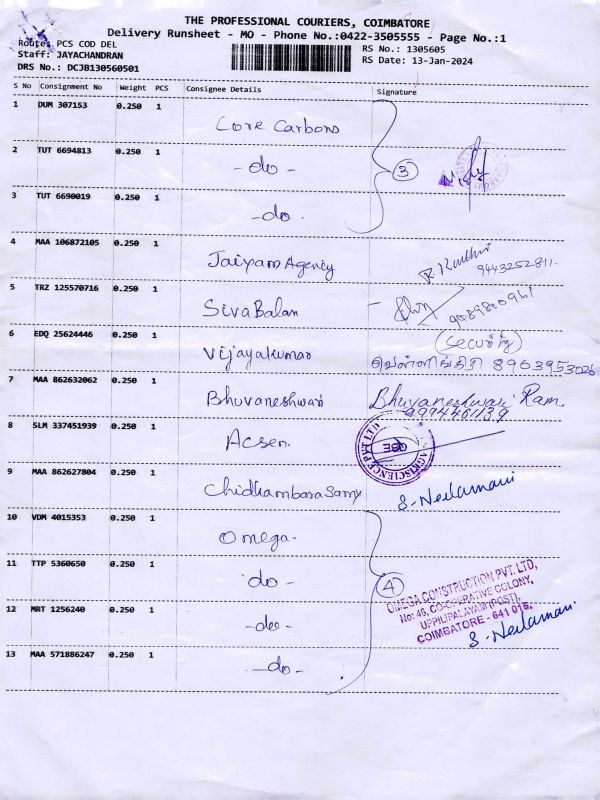 THE PROFESSIONAL COURIERS, COIMBATORE
Delivery Runsheet - MO - Phone No.:0422-3505555 - Page No.:1
Route: PCS COD DEL
RS No.: 1305605
Staff: JAYACHANDRAN
RS Date: 13-Jan-2024
DRS No.: DCJB130560501
S No Consignment No Weight PCS Consignee Details Signature
1 DUM 307153 0.250 1
Core Carbons
2 TUT 6694813 0.250 1
- do -
3
3 TUT 6690019 0.250 1
- do.
4 MAA 106872105 0.250 1
Jaiyam Agency
9443252811.
5 TRZ 125570716 0.250 1
SivaBalan
9089800961
6 EDQ 25624446 0.250 1
(Security)
Vijayakumar
வெள்ளிங்கிரி 8903953026
7 MAA 862632062 0.250 1
Bhuvaneshwari
Bhuvaneshwari Ram
9994461139
8 SLM 337451939 0.250 1
Acsen.
AGRISCIENCE
9 MAA 862627804 0.250 1
Chidhambara Samy
S. Neelamani
10 VDM 4015353 0.250 1
Omega-
11 TTP 5360650 0.250 1
do -
4
OMEGA CONSTRUCTION PVT. LTD,
No: 46, CO-OPERATIVE COLONY,
UPPILIPALAYAM (POST),
COIMBATORE - 641 015.
12 MRT 1256240 0.250 1
- do -
S. Neelamani.
13 MAA 571886247 0.250 1
- do -